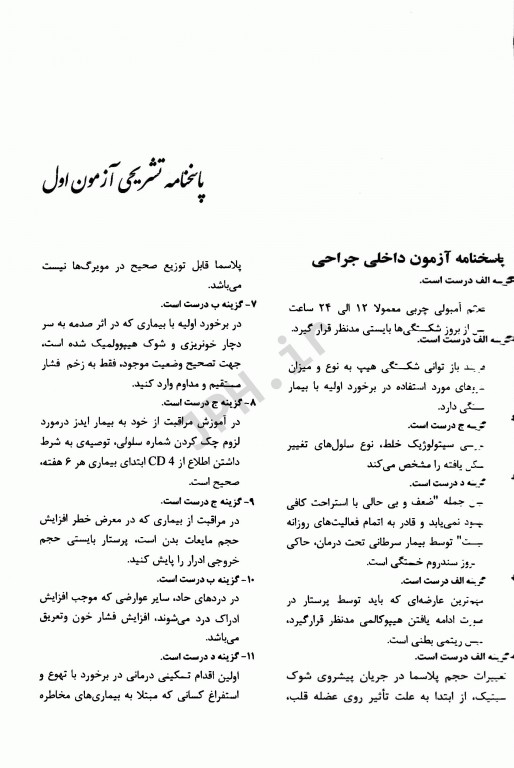 پاسخنامه تشریحی آزمون اول
پاسخنامه آزمون داخلی جراحی
گزینه الف درست است.
علائم آمبولی چربی معمولا ۱۲ الی ۲۴ ساعت
پس از بروز شکستگی‌ها بایستی مدنظر قرار گیرد.
گزینه الف درست است.
باز توانی شکستگی هیپ به نوع و میزان
مورد استفاده در برخورد اولیه با بیمار
بستگی دارد.
گزینه ج درست است.
بررسی سیتولوژیک خلط، نوع سلول‌های تغییر
شکل یافته را مشخص می‌کند
گزینه د درست است.
جمله "ضعف و بی حالی با استراحت کافی
بهبود نمی‌یابد و قادر به اتمام فعالیت‌های روزانه
نیست" توسط بیمار سرطانی تحت درمان، حاکی
بروز سندروم خستگی است.
گزینه الف درست است.
مهم‌ترین عارضه‌ای که باید توسط پرستار در
صورت ادامه یافتن هیپوکالمی مدنظر قرارگیرد،
دیس ریتمی بطنی است.
گزینه الف درست است.
تغییرات حجم پلاسما در جریان پیشروی شوک
سپتیک، از ابتدا به علت تأثیر روی عضله قلب،
پلاسما قابل توزیع صحیح در مویرگ‌ها نیست
می‌باشد.
۷- گزینه ب درست است.
در برخورد اولیه با بیماری که در اثر صدمه به سر
دچار خونریزی و شوک هیپوولمیک شده است،
جهت تصحیح وضعیت موجود، فقط به زخم فشار
مستقیم و مداوم وارد کنید.
۸- گزینه ج درست است.
در آموزش مراقبت از خود به بیمار ایدز درمورد
لزوم چک کردن شماره سلولی، توصیه‌ی به شرط
داشتن اطلاع از CD 4 ابتدای بیماری هر ۶ هفته،
صحیح است.
۹- گزینه ج درست است.
در مراقبت از بیماری که در معرض خطر افزایش
حجم مایعات بدن است، پرستار بایستی حجم
خروجی ادرار را پایش کنید.
۱۰- گزینه ب درست است.
در دردهای حاد، سایر عوارضی که موجب افزایش
ادراک درد می‌شوند، افزایش فشار خون وتعریق
می‌باشد.
۱۱- گزینه د درست است.
اولین اقدام تسکینی درمانی در برخورد با تهوع و
استفراغ کسانی که مبتلا به بیماری‌های مخاطره
JPH.ir